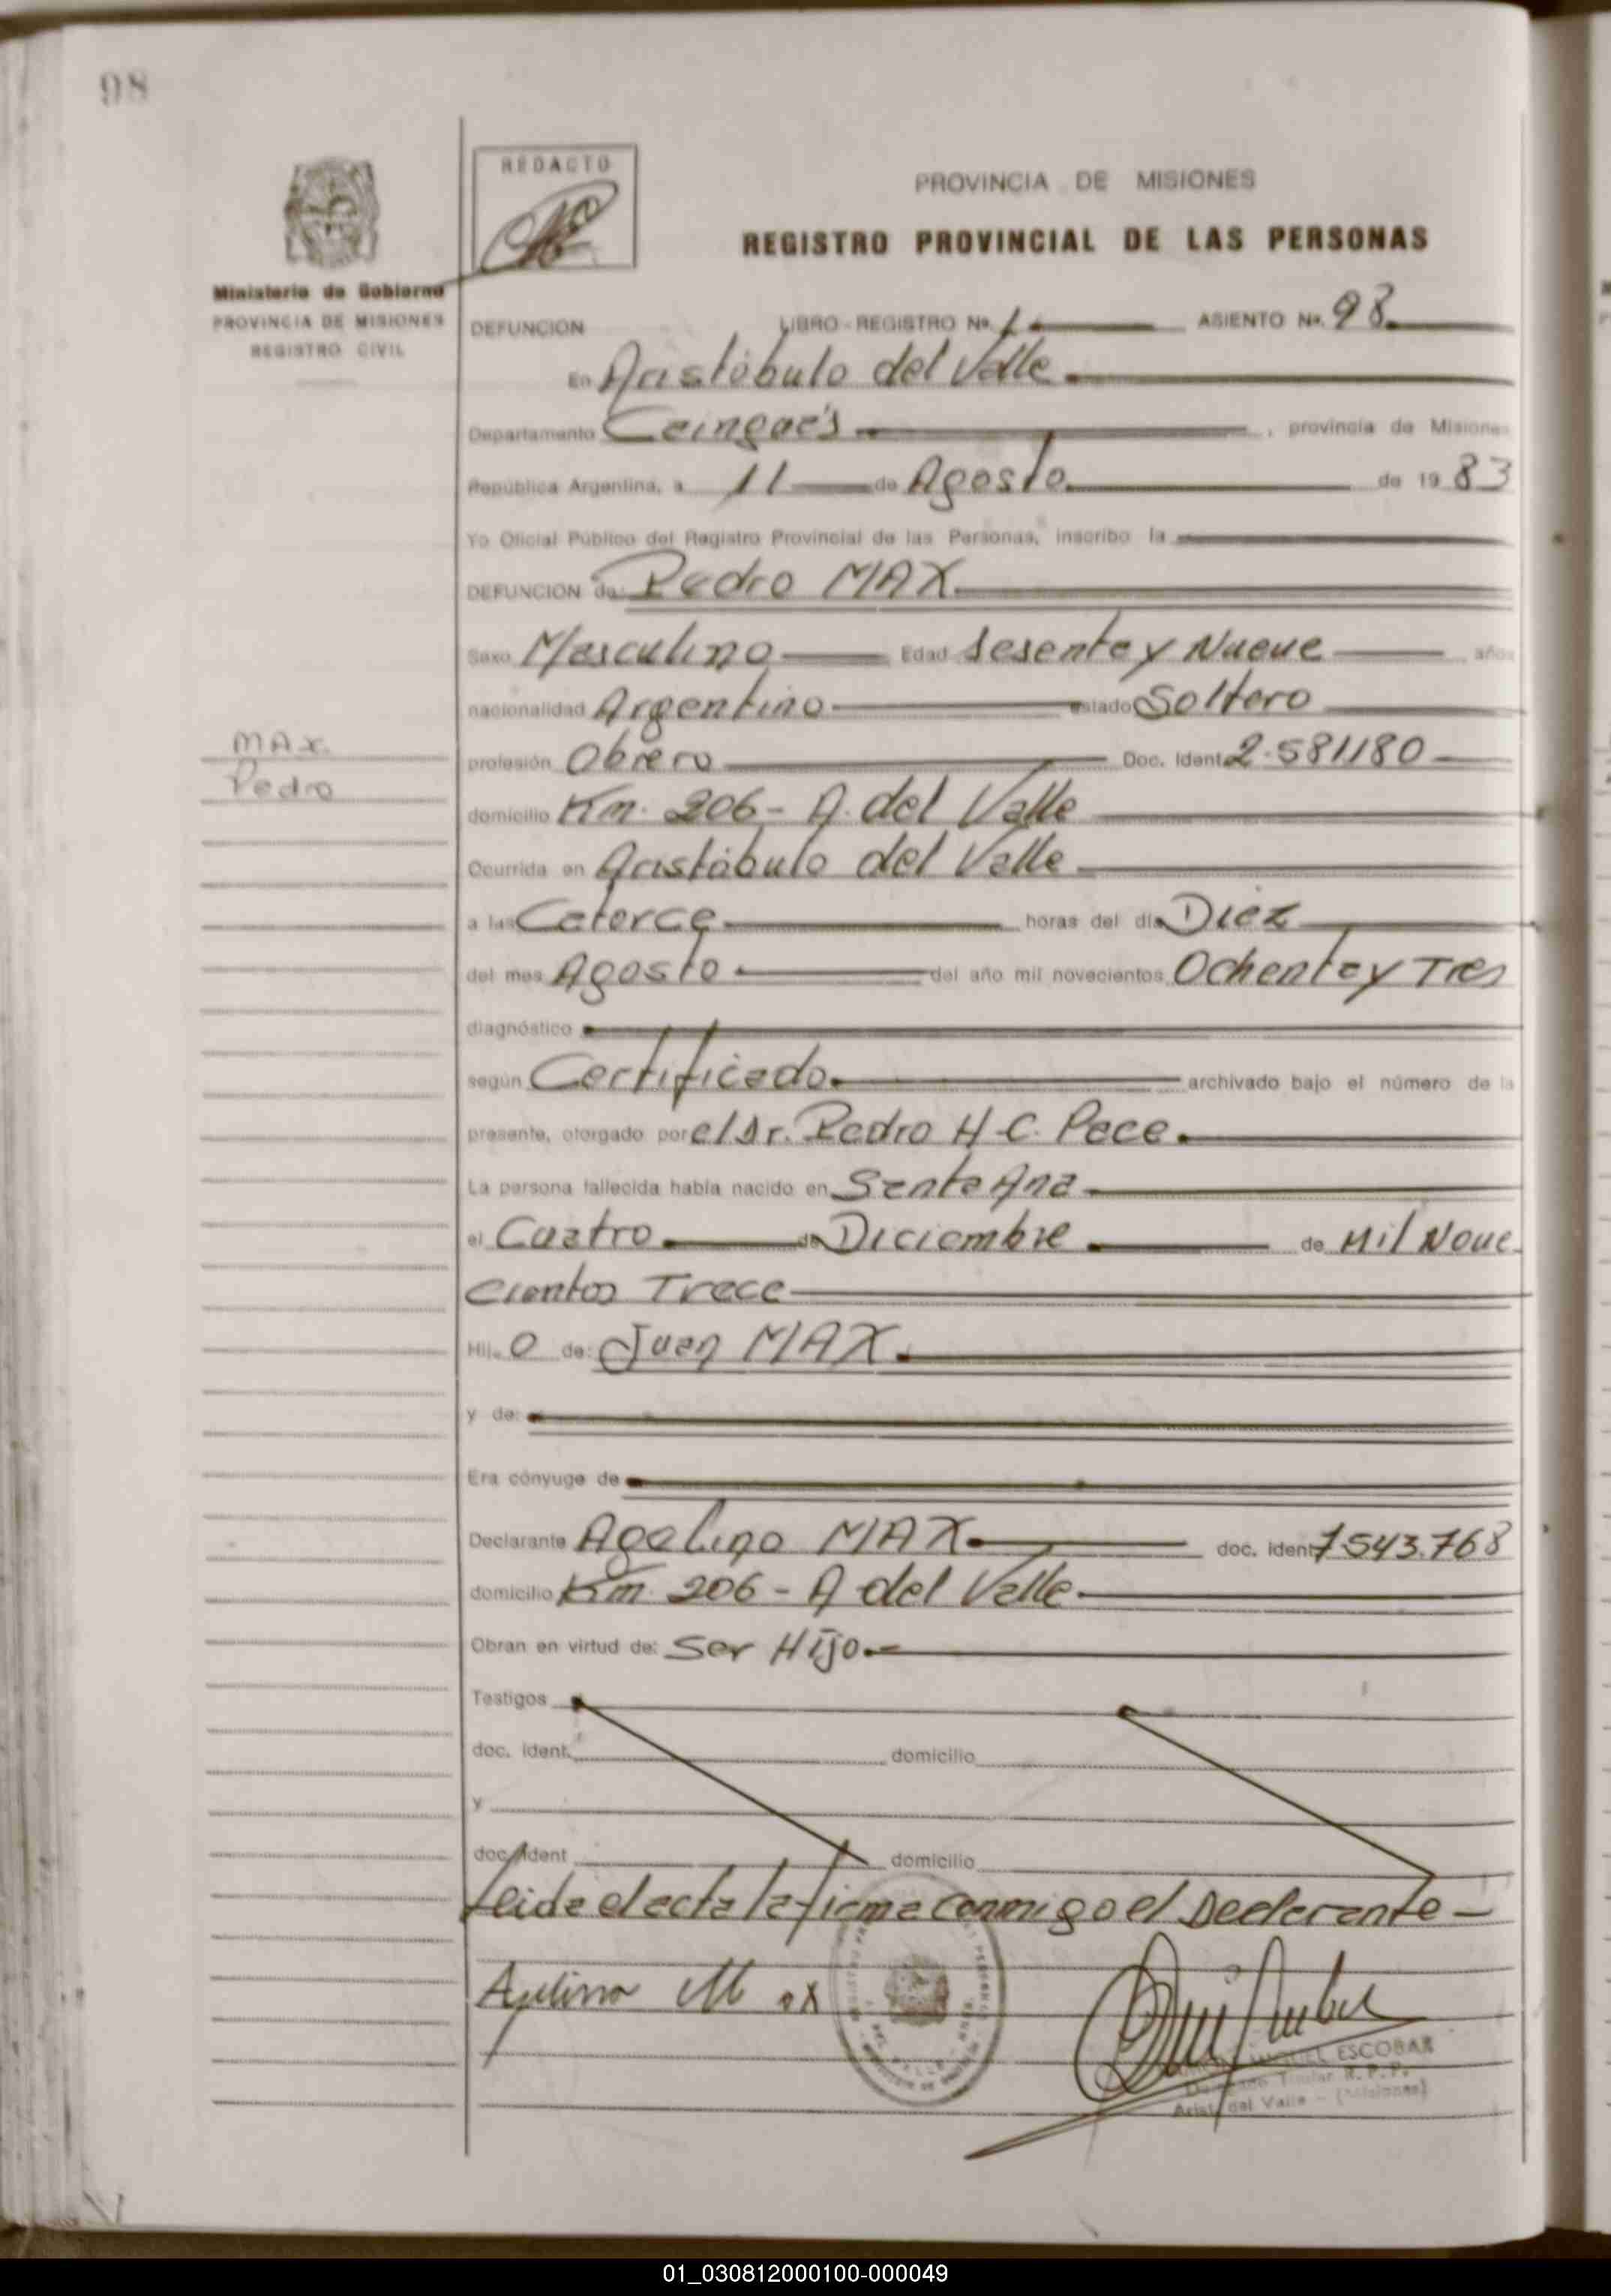 98
REDACTO
PROVINCIA DE MISIONES
REGISTRO PROVINCIAL DE LAS PERSONAS
Ministerio de Gobierno
PROVINCIA DE MISIONES
REGISTRO CIVIL
DEFUNCION LIBRO - REGISTRO Nº. 1 ASIENTO Nº. 98
En Aristóbulo del Valle
Departamento Caingúas, provincia de Misiones
República Argentina, a 11 de Agosto de 1983
Yo Oficial Público del Registro Provincial de las Personas, inscribo la
DEFUNCION de: Pedro MAX
Sexo Masculino Edad Sesenta y Nueve años
nacionalidad Argentino estado Soltero
MAX.
Pedro
profesión Obrero Doc. Ident. 2.581180
domicilio Km. 206 - A. del Valle
Ocurrida en Aristóbulo del Valle
a las Catorce horas del día Diez
del mes Agosto del año mil novecientos Ochenta y Tres
diagnóstico
según Certificado archivado bajo el número de la
presente, otorgado por el Dr. Pedro H-C. Pace.
La persona fallecida había nacido en Santa Ana
el Cuatro de Diciembre de Mil Nove
cientos Trece
Hijo de: Juan MAX.
y de:
Era cónyuge de
Declarante Agelino MAX doc. ident 7543.768
domicilio Km. 206 - A del Valle
Obran en virtud de: Ser Hijo
Testigos
doc. ident. domicilio
y
doc. ident domicilio
Leida el acta la firma conmigo el Declarante -
Agelino Max
MIGUEL ESCOBAR
Titular R.P.P.
Arist. del Valle - (Misiones)
01_030812000100-000049